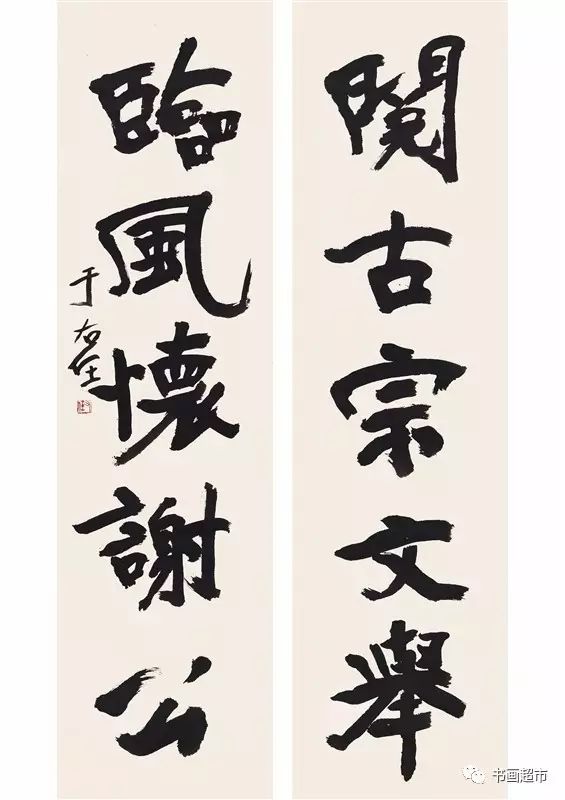 閱古宗文舉
臨風懷謝公
于右任
书画超市